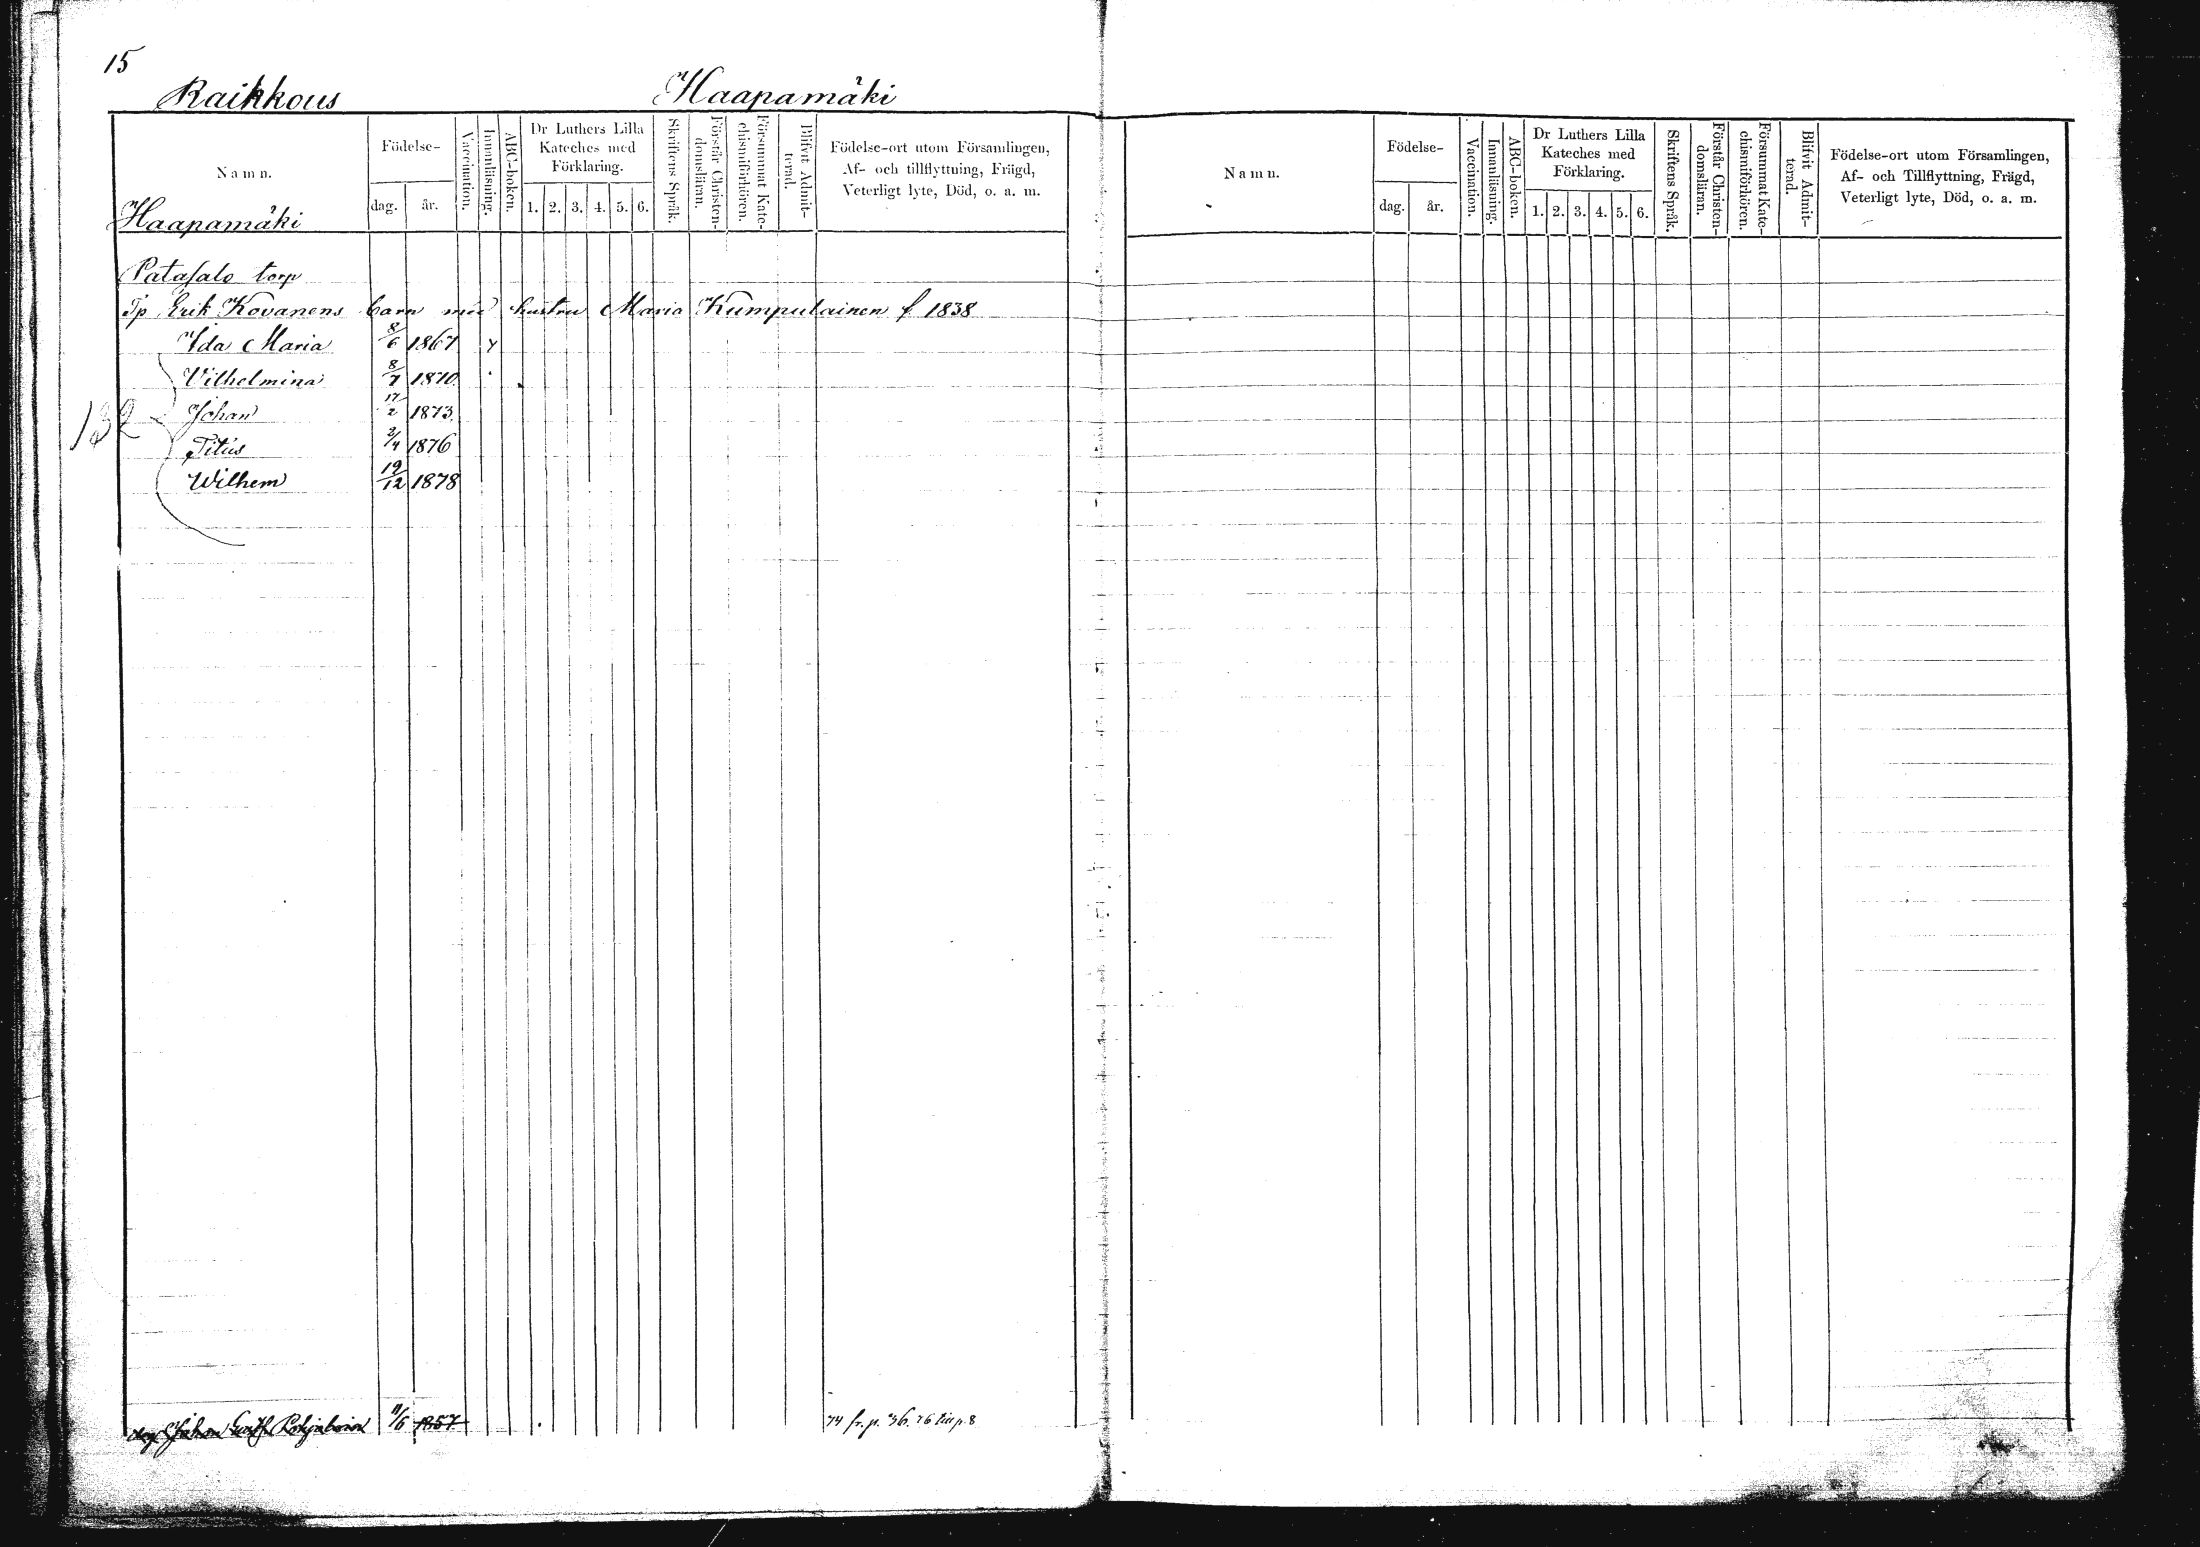 15
Raikkous Haapamäki
Namn.
Födelse-
dag. år.
Vaccination.
Innanläsning.
ABC-boken.
Dr Luthers Lilla
Kateches med
Förklaring.
1. 2. 3. 4. 5. 6.
Skriftens Språk.
Förstår Christen-
domsläran.
Försummat Kate-
chismiförhören.
Blifvit Admit-
terad.
Födelse-ort utom Församlingen,
Af- och tillflyttning, Frägd,
Veterligt lyte, Död, o. a. m.
Haapamäki
Patasalo torp
Tp Erik Kovanens barn med hustru Maria Kumpulainen f 1838
Ida Maria 8/6 1867 y
Vilhelmina 8/7 1870
Johan 17/2 1873
132
Titus 2/4 1876
Wilhem 19/12 1878
Johan 11/6 1857 74 fr. p. 36. 76 till p. 8
Namn.
Födelse-
dag. år.
Vaccination.
Innanläsning.
ABC-boken.
Dr Luthers Lilla
Kateches med
Förklaring.
1. 2. 3. 4. 5. 6.
Skriftens Språk.
Förstår Christen-
domsläran.
Försummat Kate-
chismiförhören.
Blifvit Admit-
terad.
Födelse-ort utom Församlingen,
Af- och Tillflyttning, Frägd,
Veterligt lyte, Död, o. a. m.